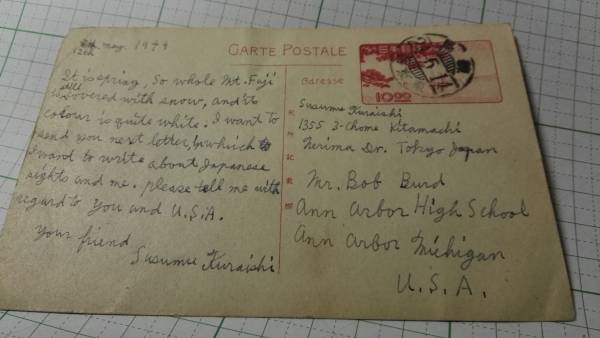 12th may. 1949
CARTE POSTALE
It is spring. So whole Mt. Fuji
is still covered with snow, and its
colour is quite white. I want to
send you next letter, in which
I want to write about Japanese
sights and me. please tell me with
regard to you and U.S.A.
Your friend
Susumu Kuraishi
Adresse
10.00
Susumu Kuraishi
1355 2-Chome Kitamachi
Nerima Dr. Tokyo Japan
Mr. Bob Burd
Ann Arbor High School
Ann Arbor Michigan
U. S. A.